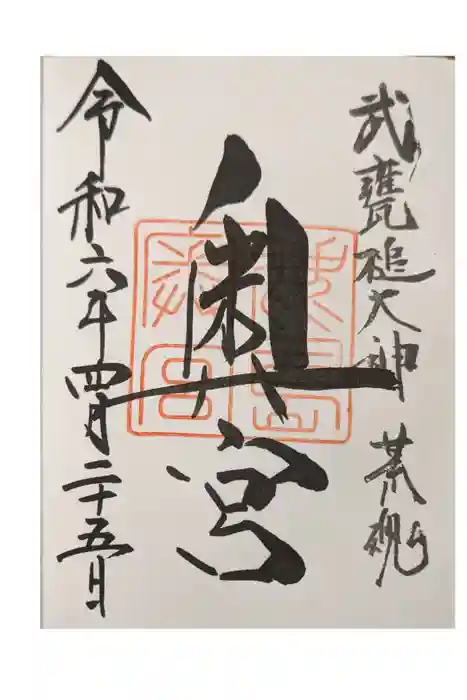 武甕槌大神 荒魂
奥宮
令和六年四月二十五日